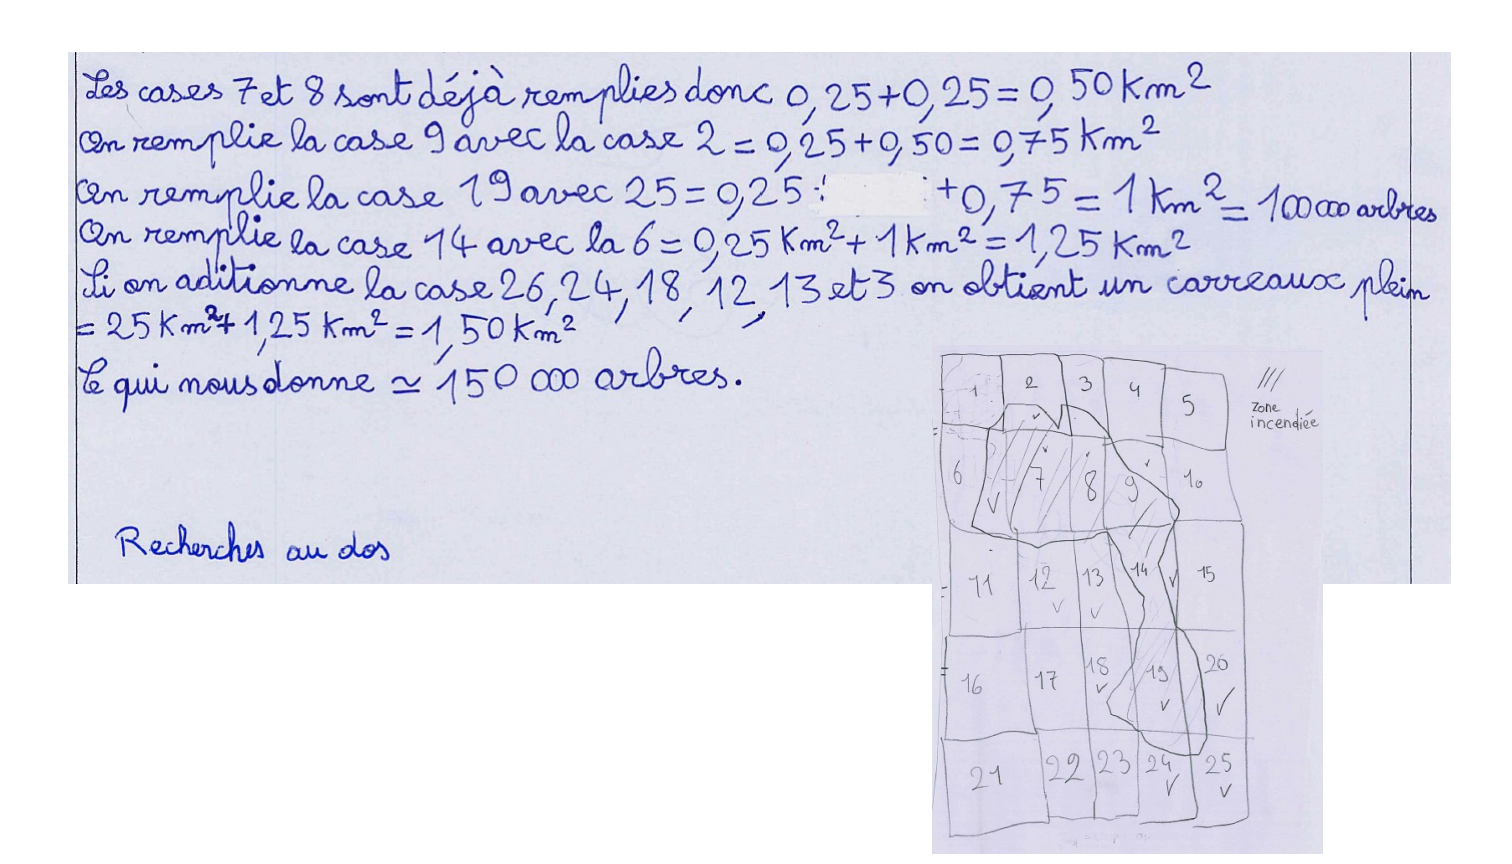 Les cases 7 et 8 sont déjà remplies donc 0,25+0,25=0,50 Km²
On remplie la case 9 avec la case 2 = 0,25+0,50=0,75 Km²
On remplie la case 19 avec 25=0,25 +0,75=1 Km²=100 000 arbres
On remplie la case 14 avec la 6=0,25 Km²+1 Km²=1,25 Km²
Si on aditionne la case 26, 24, 18, 12, 13 et 3 on obtient un carreaux plein
= 25 Km²+1,25 Km²=1,50 Km²
Ce qui nous donne ≃ 150 000 arbres.
Recherches au dos
1 2 3 4 5
/// zone
incendiée
6 7 8 9 10
11 12 13 14 15
16 17 18 19 20
21 22 23 24 25